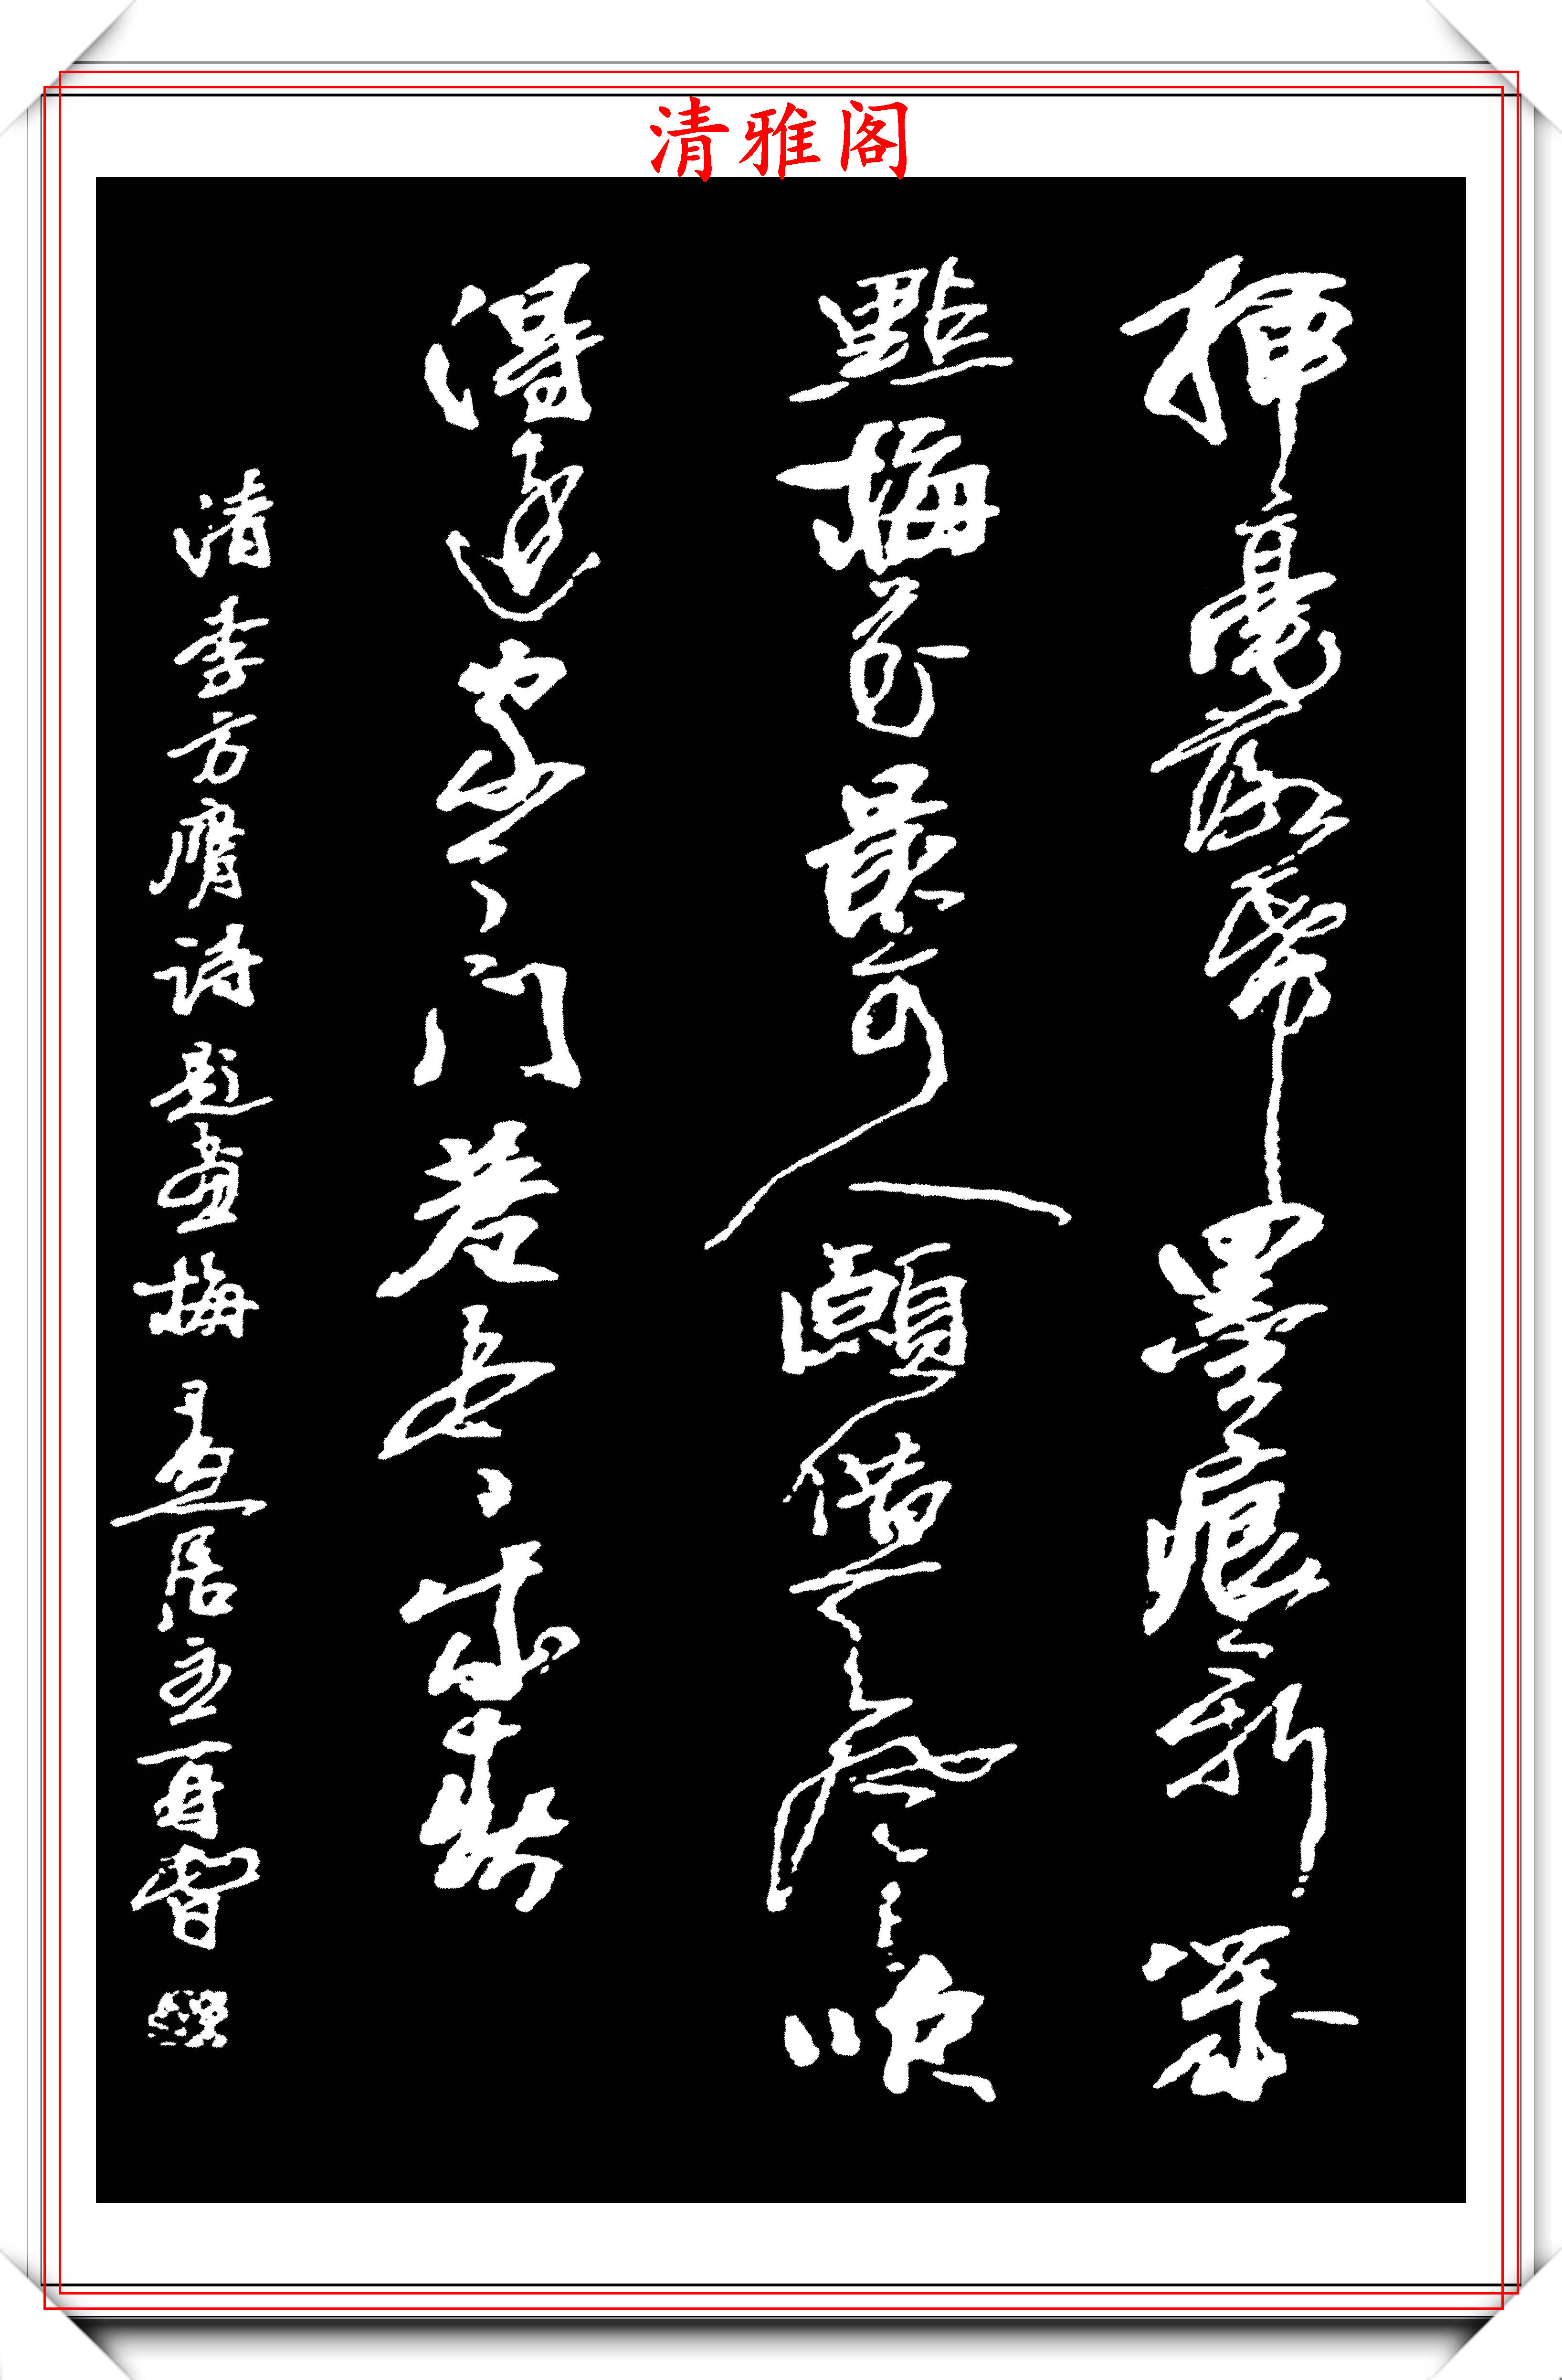 清雅阁
揮毫落帋墨痕新幾
點梅花最可人願借天風吹
得遠家家門巷盡成春
清李方膺詩題畫梅